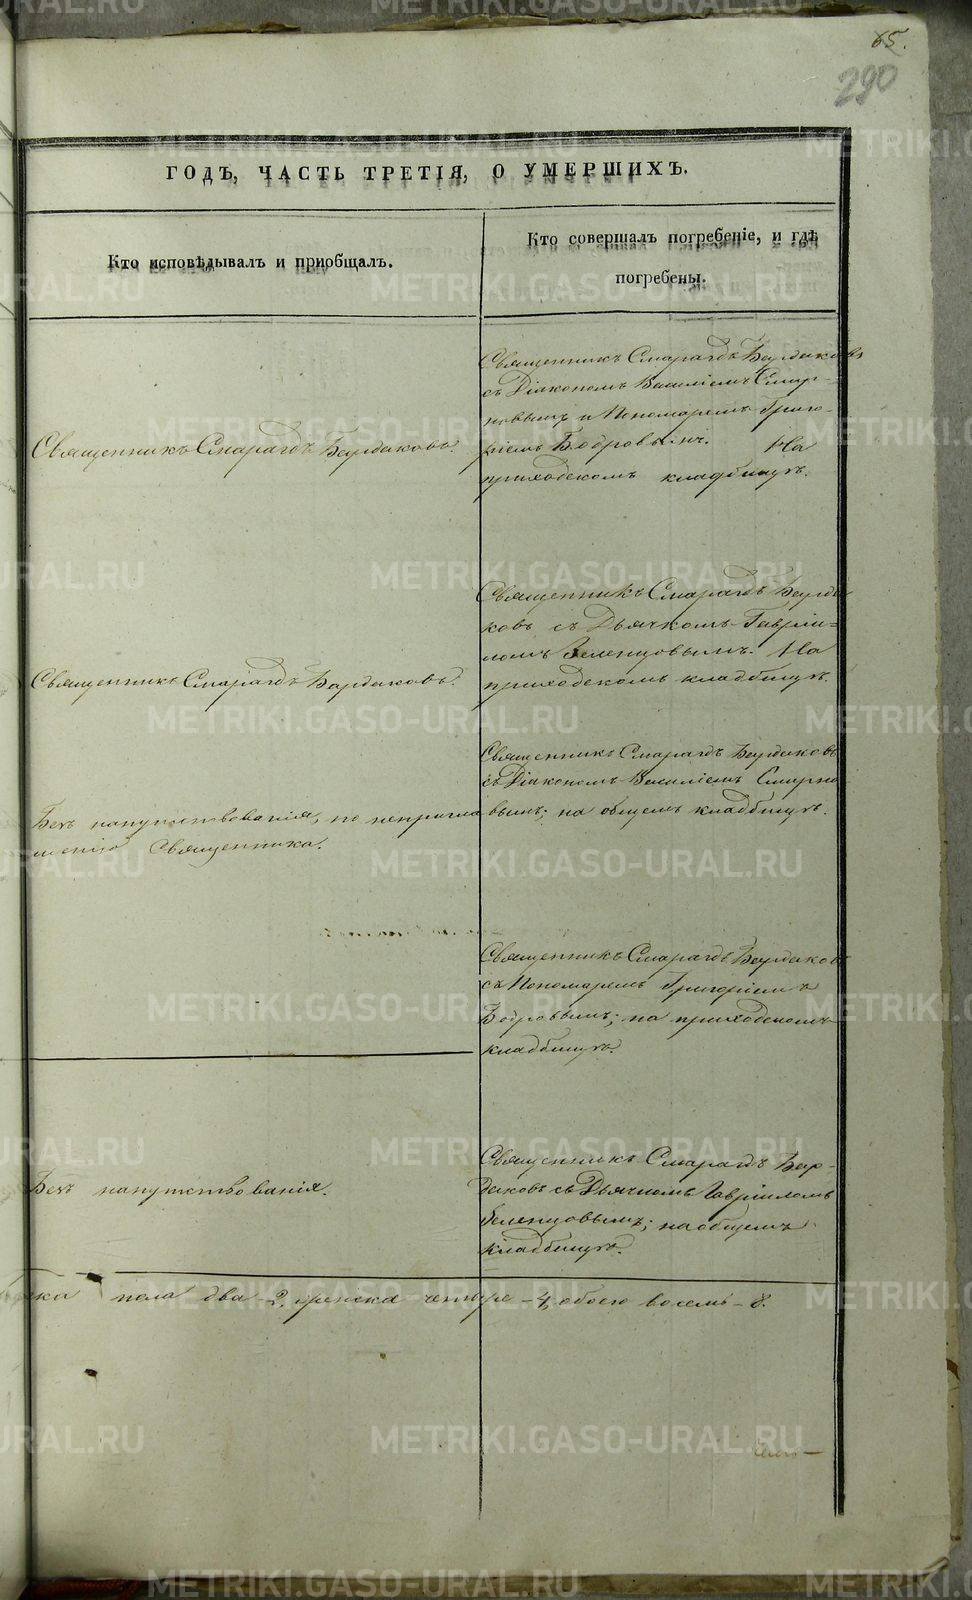 65.
290
ГОДЪ, ЧАСТЬ ТРЕТІЯ, О УМЕРШИХЪ.
Кто исповѣдывалъ и приобщалъ.
Кто совершалъ погребеніе, и гдѣ
погребены.
Священникъ Смарагдъ Бардаковъ.
Священникъ Смарагдъ Бардаковъ
съ Діакономъ Василіемъ Смир-
новымъ и Пономаремъ Григо-
ріемъ Бобровымъ. На
приходскомъ кладбищѣ.
Священникъ Смарагдъ Бардаковъ.
Священникъ Смарагдъ Барда-
ковъ съ Дьячкомъ Гавріи=
ломъ Зеленцовымъ. На
приходскомъ кладбищѣ.
Безъ напутствованія, по непригла
шенію Священника.
Священникъ Смарагдъ Бардаковъ
съ Діакономъ Василіемъ Смирно
вымъ; на общемъ кладбищѣ.
Священникъ Смарагдъ Бардаковъ
съ Пономаремъ Григоріемъ
Бобровымъ; на приходскомъ
кладбищѣ.
Безъ напутствованія.
Священникъ Смарагдъ Бар-
даковъ съ Дьячкомъ Гавріиломъ
Зеленцовымъ; на общемъ
кладбищѣ.
пола два - 2, женска четыре - 4, обоего восемь - 8.
METRIKI.GASO-URAL.RU